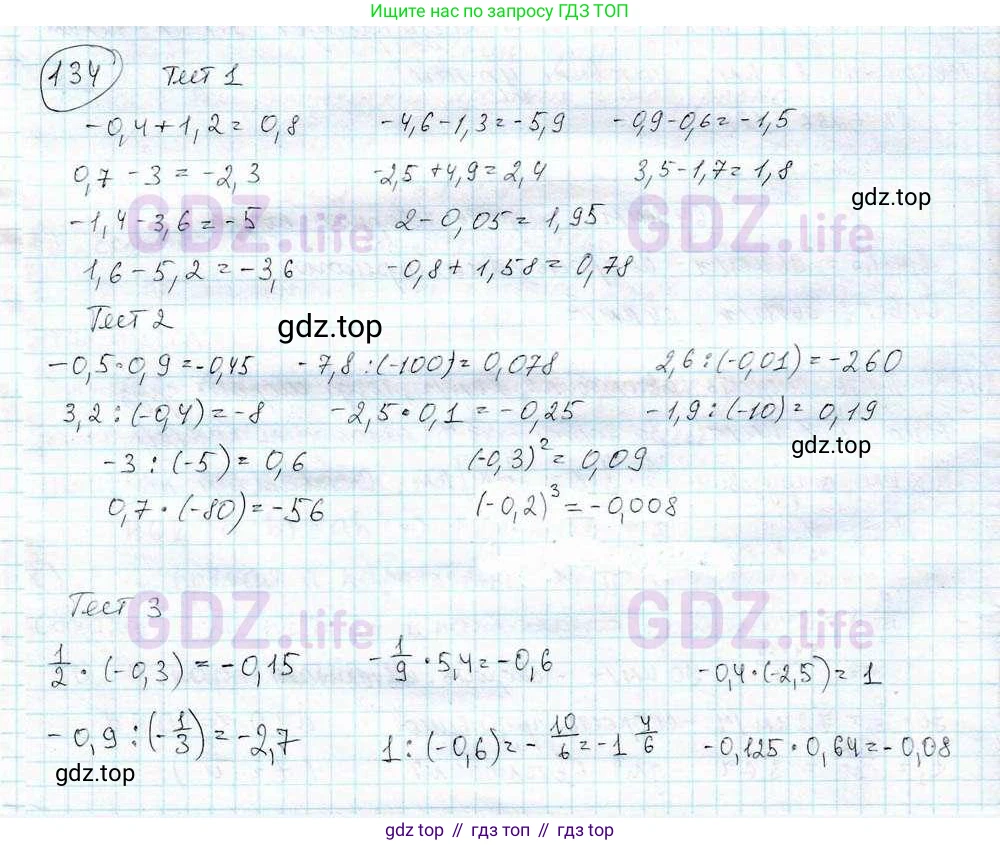 Ищите по запросу ГДЗ ТОП
134 Тест 1
-0,4+1,2=0,8 -4,6-1,3=-5,9 -0,9-0,6=-1,5
0,7-3=-2,3 -2,5+4,9=2,4 3,5-1,7=1,8
gdz.top
-1,4-3,6=-5 2-0,05=1,95
GDZ.life GDZ.life
1,6-5,2=-3,6 -0,8+1,58=0,78
Тест 2
gdz.top
-0,5·0,9=-0,45 -7,8:(-100)=0,078 2,6:(-0,01)=-260
3,2:(-0,4)=-8 -2,5·0,1=-0,25 -1,9:(-10)=0,19
gdz.top
-3:(-5)=0,6 (-0,3)²=0,09
0,7·(-80)=-56 (-0,2)³=-0,008
Тест 3
GDZ.life GDZ.life
1/2·(-0,3)=-0,15 -1/9·5,4=-0,6 -0,4·(-2,5)=1
-0,9:(-1/3)=-2,7 1:(-0,6)=-10/6=-1 4/6 -0,125·0,64=-0,08
gdz.top
gdz.top // гдз топ // gdz.top